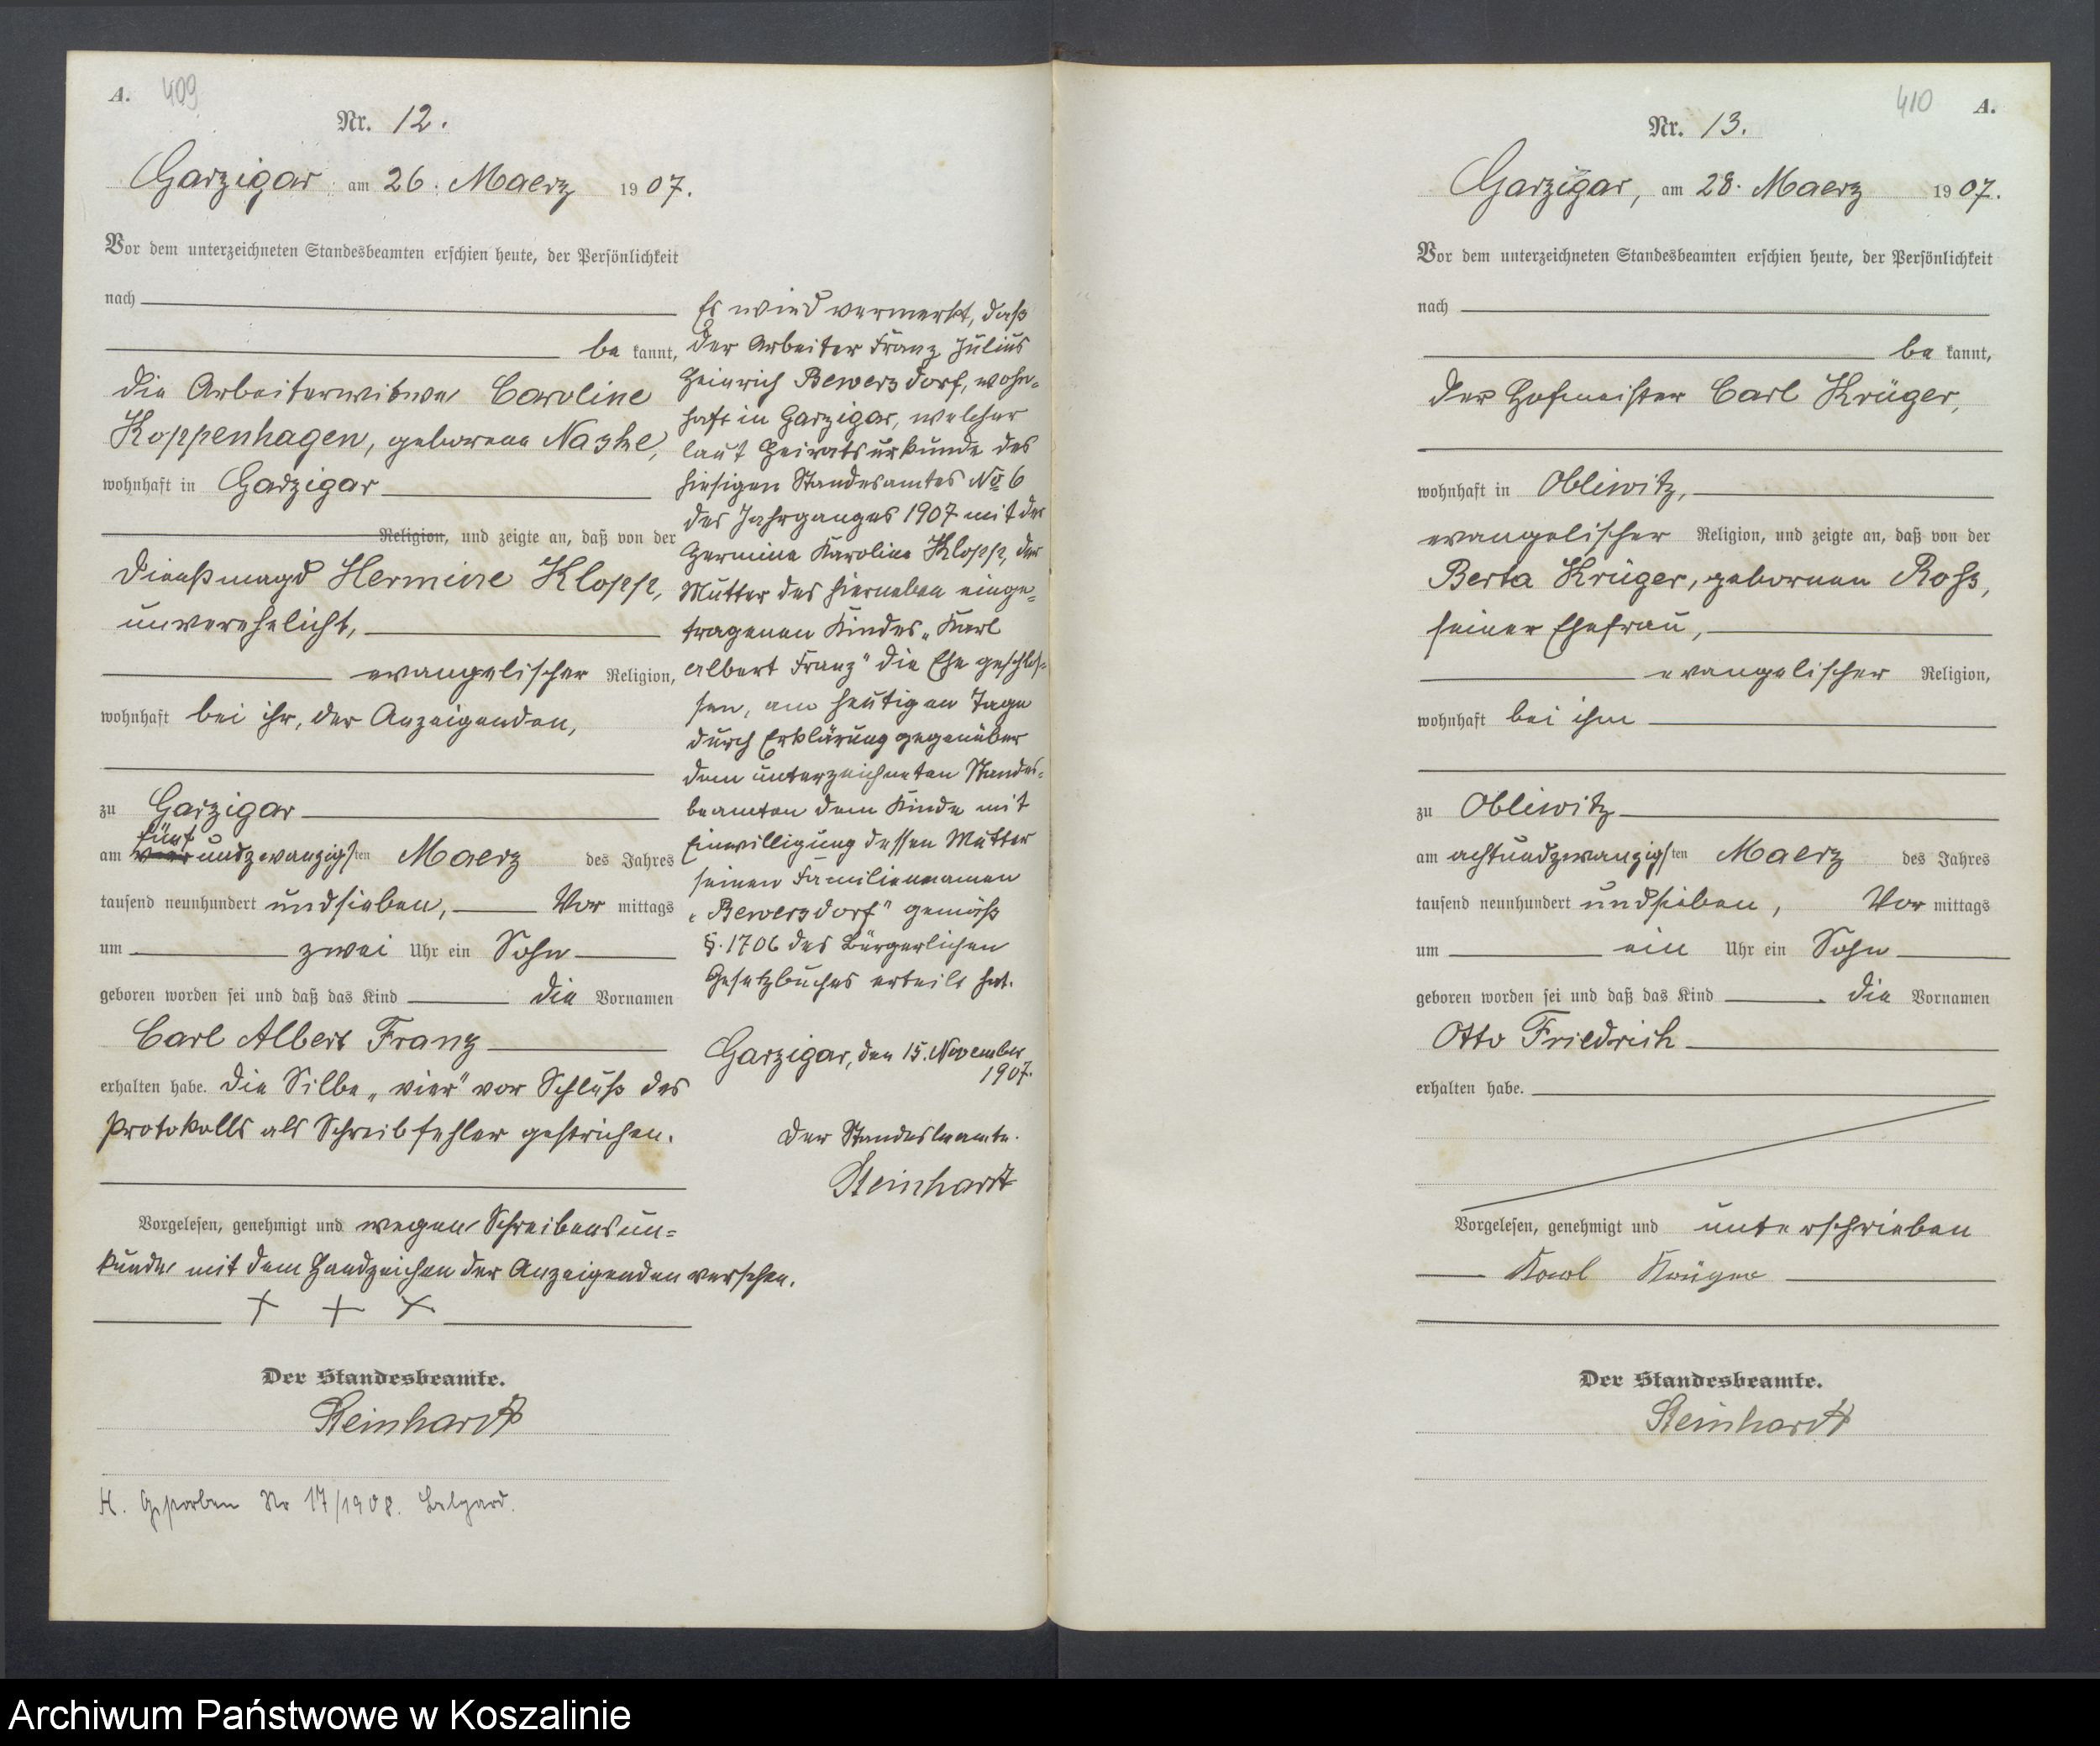 A. 409
Nr. 12.
Garzigar am 26. Maerz 1907.
Vor dem unterzeichneten Standesbeamten erschien heute, der Persönlichkeit
nach
be kannt,
die Arbeiterwitwe Caroline
Koppenhagen, geborene
wohnhaft in Garzigar
Religion, und zeigte an, daß von der
Dienstmagd Hermine Klopp,
unverehelicht,
evangelischer Religion,
wohnhaft bei ihr, der Anzeigenden,
zu Garzigar
fünf
am vier undzwanzigsten Maerz des Jahres
tausend neunhundert undsieben, Vor mittags
um zwei Uhr ein Sohn
geboren worden sei und daß das Kind die Vornamen
Carl Albert Franz
erhalten habe. Die Silbe „vier“ vor Schluß des
Protokolls als Schreibfehler gestrichen.
Vorgelesen, genehmigt und wegen Schreibensun=
kunde mit dem Handzeichen der Anzeigenden versehen.
+ + +
Der Standesbeamte.
Steinhardt
H. Gestorben Nr 17/1908. Belgard.
Es wird vermerkt, daß
der Arbeiter Franz Julius
Heinrich Bewersdorf, wohn=
haft in Garzigar, welcher
laut Heiratsurkunde des
hiesigen Standesamtes No 6
des Jahrganges 1907 mit der
Hermine Karoline Klopp, der
Mutter des hierneben einge=
tragenen Kindes „Karl
Albert Franz“ die Ehe geschlos=
sen, am heutigen Tage
durch Erklärung gegenüber
dem unterzeichneten Standes=
beamten dem Kinde mit
Einwilligung dessen Mutter
seinen Familiennamen
„Bewersdorf“ gemäß
§. 1706 des Bürgerlichen
Gesetzbuches erteilt hat.
Garzigar, den 15. November
1907.
Der Standesbeamte.
Steinhardt
410 A.
Nr. 13.
Garzigar, am 28. Maerz 1907.
Vor dem unterzeichneten Standesbeamten erschien heute, der Persönlichkeit
nach
be kannt,
der Hofmeister Carl Krüger,
wohnhaft in Obliwitz,
evangelischer Religion, und zeigte an, daß von der
Berta Krüger, geborenen Roß,
seiner Ehefrau,
evangelischer Religion,
wohnhaft bei ihm
zu Obliwitz
am achtundzwanzigsten Maerz des Jahres
tausend neunhundert undsieben, Vor mittags
um ein Uhr ein Sohn
geboren worden sei und daß das Kind die Vornamen
Otto Friedrich
erhalten habe.
Vorgelesen, genehmigt und unterschrieben
Karl Krüger
Der Standesbeamte.
Steinhardt
Archiwum Państwowe w Koszalinie